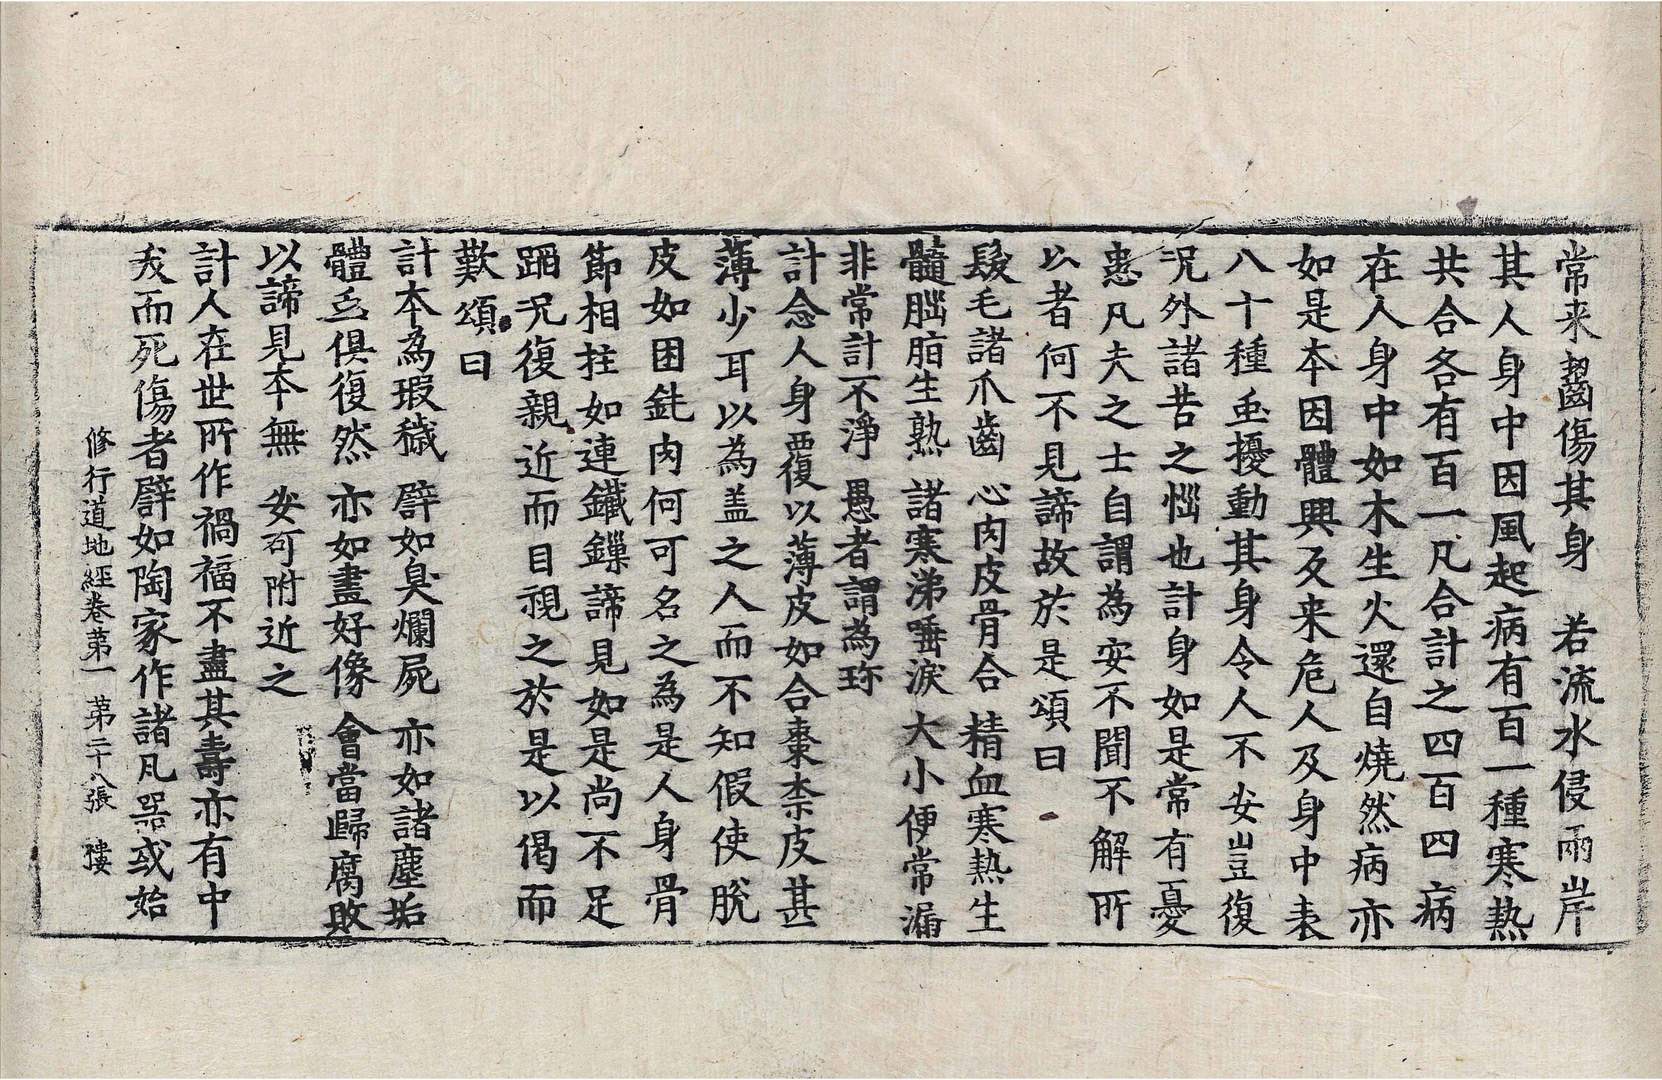 常来齧傷其身　若流水侵兩岸
其人身中因風起病有百一種寒熱
共合各有百一凡合計之四百四病
在人身中如木生火還自燒然病亦
如是本因體興反来危人及身中表
八十種䖝擾動其身令人不安豈復
况外諸苦之惱也計身如是常有憂
患凡夫之士自謂為安不聞不解所
以者何不見諦故於是頌曰
髮毛諸爪齒　心肉皮骨合　精血寒熱生
髓腦脂生熟　諸寒涕唾淚　大小便常漏
非常計不淨　愚者謂為珎
計念人身覆以薄皮如合棗㮈皮甚
薄少耳以為盖之人而不知假使脫
皮如困鈍肉何可名之為是人身骨
節相拄如連鐵鏁諦見如是尚不足
蹈况復親近而目視之於是以偈而
歎頌曰
計本為瑕穢　譬如臭爛屍　亦如諸塵垢
體䖝俱復然　亦如畫好像　會當歸腐敗
以諦見本無　安可附近之
計人在世所作禍福不盡其壽亦有中
夭而死傷者譬如陶家作諸凡器或始
修行道地經卷第一　第二十八張　樓